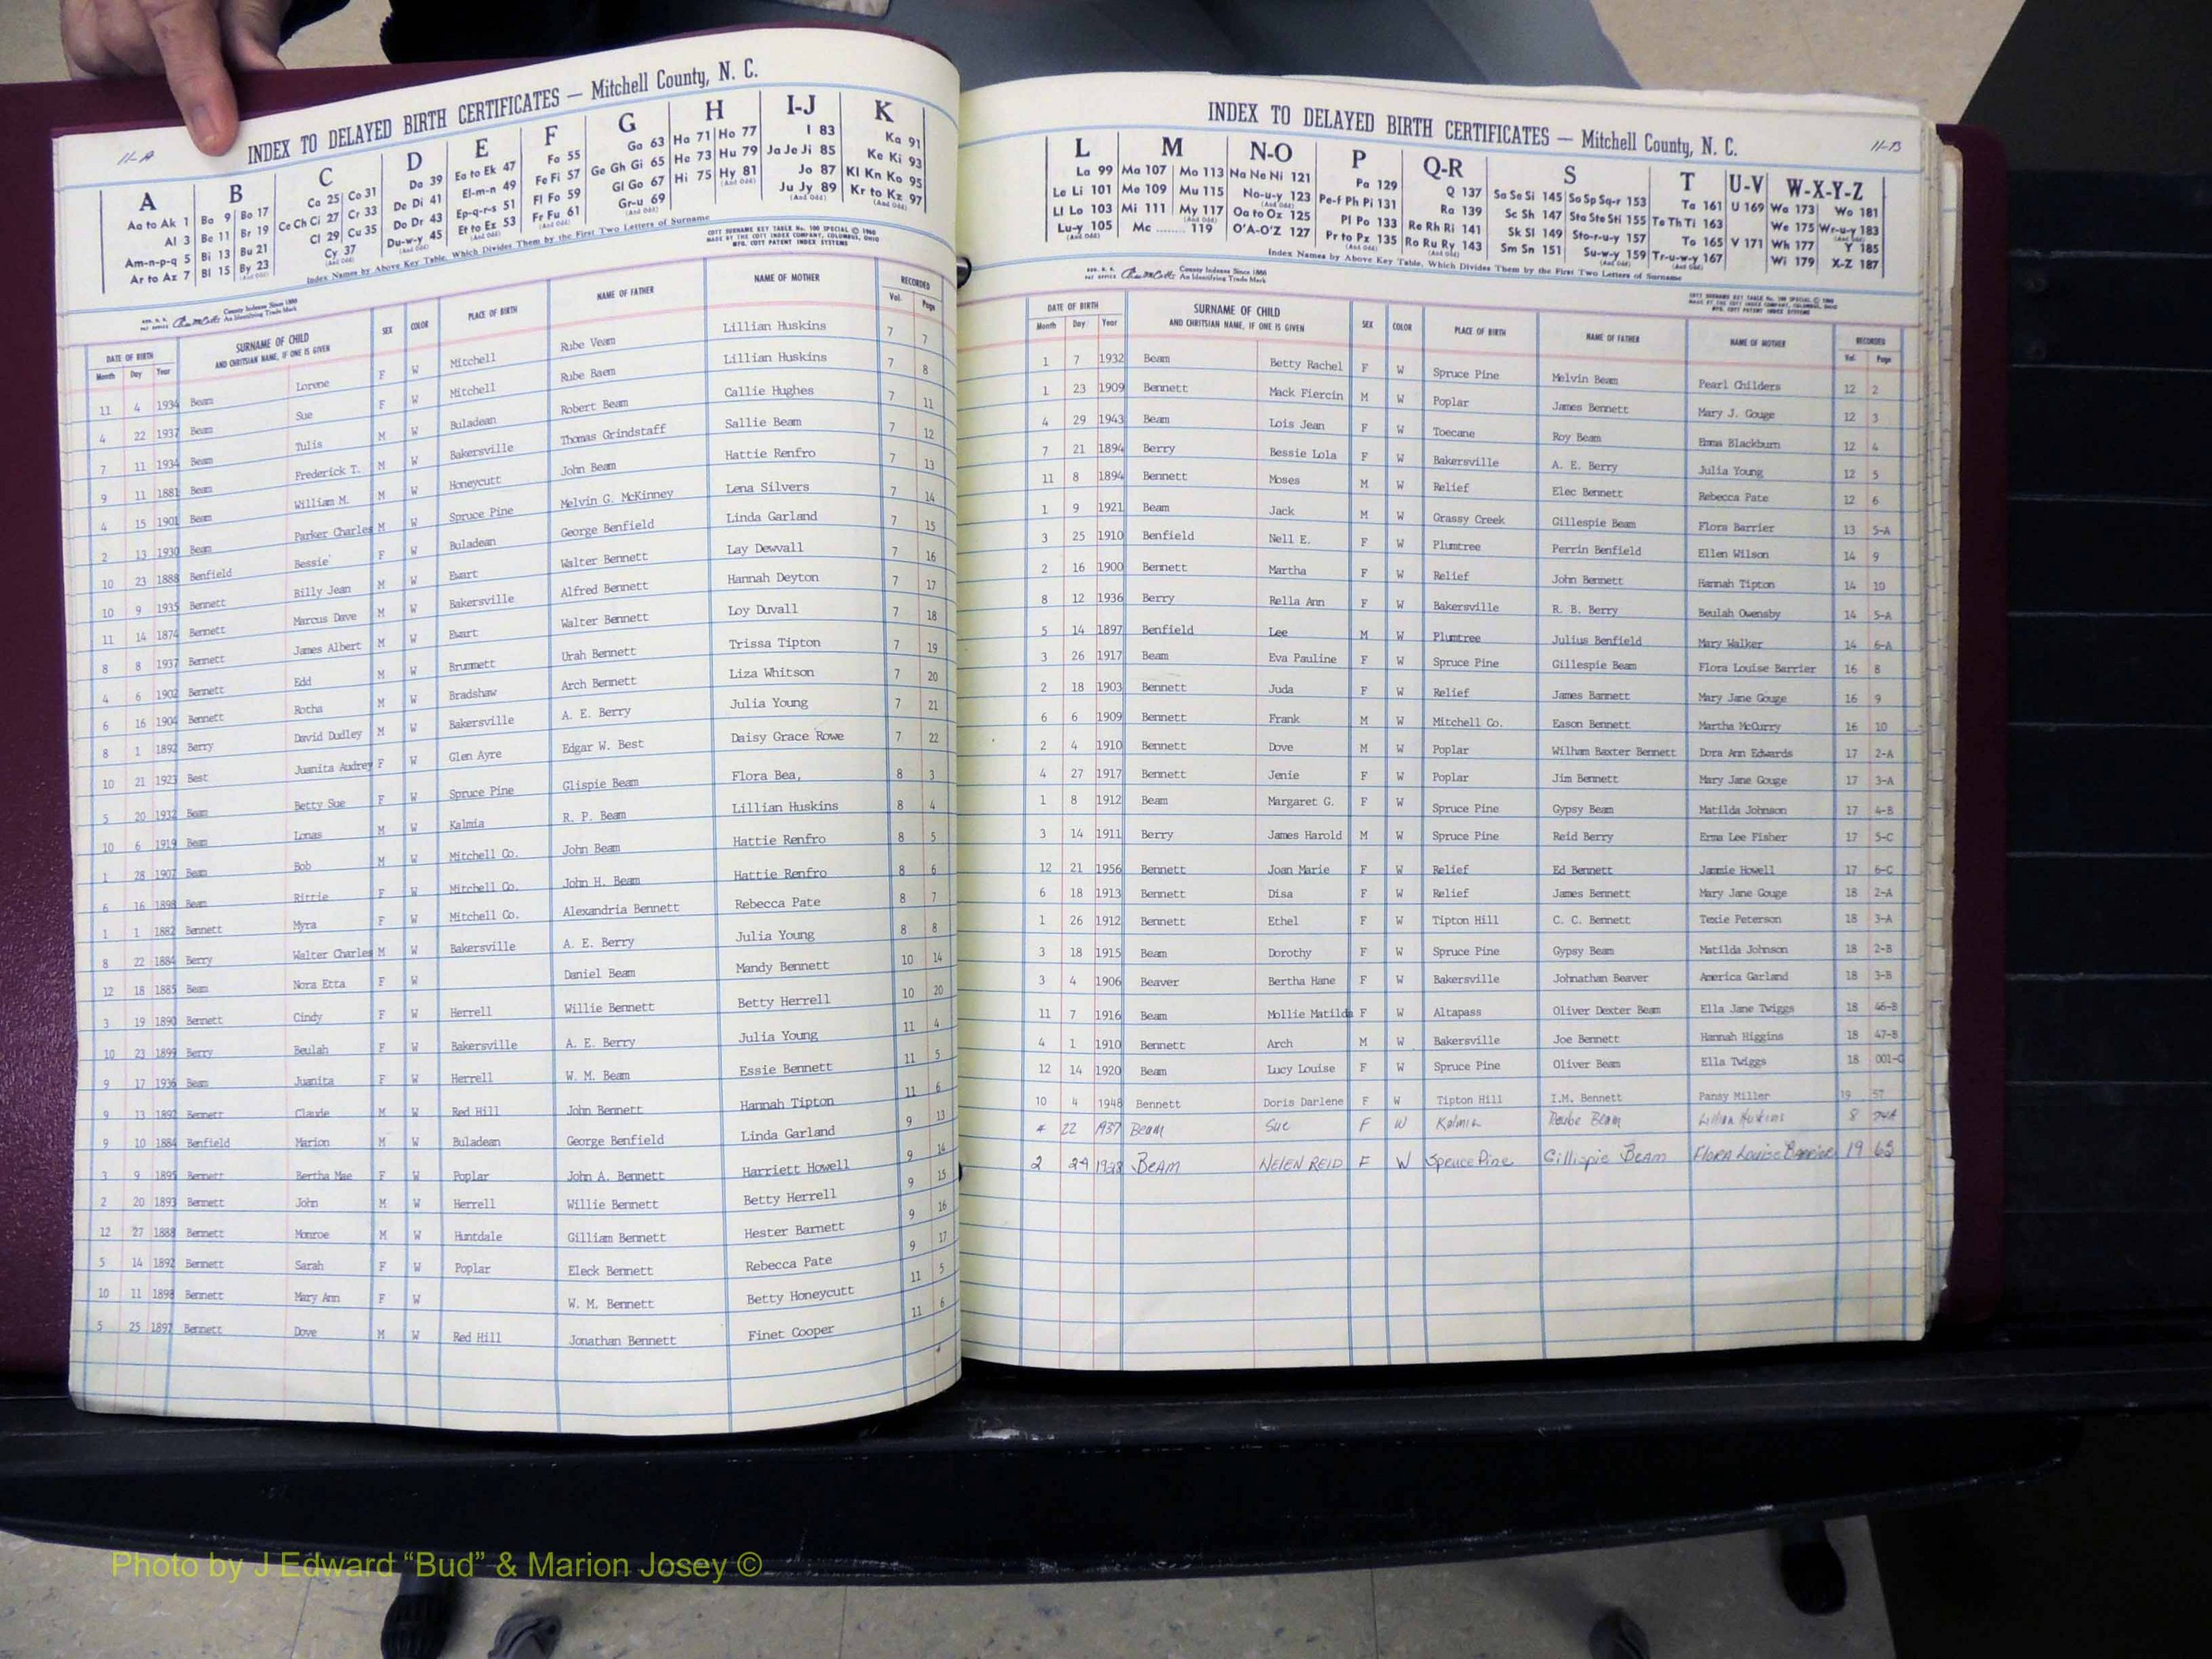 11-A
INDEX TO DELAYED BIRTH CERTIFICATES — Mitchell County, N. C.
A B C D E F G H I-J K
Aa to Ak 1 Ba 9 Bo 17 Ca 25 Co 31 Da 39 Ea to Ek 47 Fa 55 Ga 63 Ha 71 Ho 77 I 83 Ka 91
Al 3 Be 11 Br 19 Ce Ch Ci 27 Cr 33 De Di 41 El-m-n 49 Fe Fi 57 Ge Gh Gi 65 He 73 Hu 79 Ja Je Ji 85 Ke Ki 93
Am-n-p-q 5 Bi 13 Bu 21 Cl 29 Cu 35 Do Dr 43 Ep-q-r-s 51 Fl Fo 59 Gl Go 67 Hi 75 Hy 81 Jo 87 Kl Kn Ko 95
Ar to Az 7 Bl 15 By 23 Cy 37 Du-w-y 45 Et to Ez 53 Fr Fu 61 Gr-u 69 Ju Jy 89 Kr to Kz 97
Index Names by Above Key Table, Which Divides Them by the First Two Letters of Surname
COTT SURNAME KEY TABLE No. 100 SPECIAL © 1960
MADE BY THE COTT INDEX COMPANY, COLUMBUS, OHIO
MFG. COTT PATENT INDEX SYSTEMS
County Indexes Since 1888
An Identifying Trade Mark
DATE OF BIRTH SURNAME OF CHILD SEX COLOR PLACE OF BIRTH NAME OF FATHER NAME OF MOTHER RECORDED
Month Day Year AND CHRITSIAN NAME, IF ONE IS GIVEN Vol. Page
11 4 1934 Beam Lorene F W Mitchell Rube Veam Lillian Huskins 7 7
4 22 1937 Beam Sue F W Mitchell Rube Baem Lillian Huskins 7 8
7 11 1934 Beam Tulis M W Buladean Robert Beam Callie Hughes 7 11
9 11 1881 Beam Frederick T. M W Bakersville Thomas Grindstaff Sallie Beam 7 12
4 15 1901 Beam William M. M W Honeycutt John Beam Hattie Renfro 7 13
2 13 1930 Beam Parker Charles M W Spruce Pine Melvin G. McKinney Lena Silvers 7 14
10 23 1888 Benfield Bessie F W Buladean George Benfield Linda Garland 7 15
10 9 1935 Bennett Billy Jean M W Ewart Walter Bennett Lay Dewvall 7 16
11 14 1874 Bennett Marcus Dave M W Bakersville Alfred Bennett Hannah Deyton 7 17
8 8 1937 Bennett James Albert M W Ewart Walter Bennett Loy Duvall 7 18
4 6 1902 Bennett Edd M W Brummett Urah Bennett Trissa Tipton 7 19
6 16 1904 Bennett Rotha M W Bradshaw Arch Bennett Liza Whitson 7 20
8 1 1892 Berry David Dudley M W Bakersville A. E. Berry Julia Young 7 21
10 21 1923 Best Juanita Audrey F W Glen Ayre Edgar W. Best Daisy Grace Rowe 7 22
5 20 1932 Beam Betty Sue F W Spruce Pine Glispie Beam Flora Bea, 8 3
10 6 1919 Beam Lonas M W Kalmia R. P. Beam Lillian Huskins 8 4
1 28 1907 Beam Bob M W Mitchell Co. John Beam Hattie Renfro 8 5
6 16 1898 Beam Rittie F W Mitchell Co. John H. Beam Hattie Renfro 8 6
1 1 1882 Bennett Myra F W Mitchell Co. Alexandria Bennett Rebecca Pate 8 7
8 22 1884 Berry Walter Charles M W Bakersville A. E. Berry Julia Young 8 8
12 18 1885 Beam Nora Etta F W Daniel Beam Mandy Bennett 10 14
3 19 1890 Bennett Cindy F W Herrell Willie Bennett Betty Herrell 10 20
10 23 1899 Berry Beulah F W Bakersville A. E. Berry Julia Young 11 4
9 17 1936 Beam Juanita F W Herrell W. M. Beam Essie Bennett 11 5
9 13 1892 Bennett Claude M W Red Hill John Bennett Hannah Tipton 11 6
9 10 1884 Benfield Marion M W Buladean George Benfield Linda Garland 9 13
3 9 1895 Bennett Bertha Mae F W Poplar John A. Bennett Harriett Howell 9 14
2 20 1893 Bennett John M W Herrell Willie Bennett Betty Herrell 9 15
12 27 1888 Bennett Monroe M W Huntdale Gilliam Bennett Hester Barnett 9 16
5 14 1892 Bennett Sarah F W Poplar Eleck Bennett Rebecca Pate 9 17
10 11 1898 Bennett Mary Ann F W W. M. Bennett Betty Honeycutt 11 5
5 25 1897 Bennett Dove M W Red Hill Jonathan Bennett Finet Cooper 11 6
11-B
INDEX TO DELAYED BIRTH CERTIFICATES — Mitchell County, N. C.
L M N-O P Q-R S T U-V W-X-Y-Z
La 99 Ma 107 Mo 113 Na Ne Ni 121 Pa 129 Q 137 Sa Se Si 145 So Sp Sq-r 153 Ta 161 U 169 Wa 173 Wo 181
Le Li 101 Me 109 Mu 115 No-u-y 123 Pe-f Ph Pi 131 Ra 139 Sc Sh 147 Sta Ste Sti 155 Te Th Ti 163 We 175 Wr-u-y 183
Ll Lo 103 Mi 111 My 117 Oa to Oz 125 Pl Po 133 Re Rh Ri 141 Sk Sl 149 Sto-r-u-y 157 To 165 V 171 Wh 177 Y 185
Lu-y 105 Mc ........ 119 O'A-O'Z 127 Pr to Pz 135 Ro Ru Ry 143 Sm Sn 151 Su-w-y 159 Tr-u-w-y 167 Wi 179 X-Z 187
Index Names by Above Key Table, Which Divides Them by the First Two Letters of Surname
County Indexes Since 1888
An Identifying Trade Mark
COTT SURNAME KEY TABLE No. 100 SPECIAL © 1960
MADE BY THE COTT INDEX COMPANY, COLUMBUS, OHIO
MFG. COTT PATENT INDEX SYSTEMS
DATE OF BIRTH SURNAME OF CHILD SEX COLOR PLACE OF BIRTH NAME OF FATHER NAME OF MOTHER RECORDED
Month Day Year AND CHRITSIAN NAME, IF ONE IS GIVEN Vol. Page
1 7 1932 Beam Betty Rachel F W Spruce Pine Melvin Beam Pearl Childers 12 2
1 23 1909 Bennett Mack Fiercin M W Poplar James Bennett Mary J. Gouge 12 3
4 29 1943 Beam Lois Jean F W Toecane Roy Beam Emma Blackburn 12 4
7 21 1894 Berry Bessie Lola F W Bakersville A. E. Berry Julia Young 12 5
11 8 1894 Bennett Moses M W Relief Elec Bennett Rebecca Pate 12 6
1 9 1921 Beam Jack M W Grassy Creek Gillespie Beam Flora Barrier 13 5-A
3 25 1910 Benfield Nell E. F W Plumtree Perrin Benfield Ellen Wilson 14 9
2 16 1900 Bennett Martha F W Relief John Bennett Hannah Tipton 14 10
8 12 1936 Berry Rella Ann F W Bakersville R. B. Berry Beulah Owensby 14 5-A
5 14 1897 Benfield Lee M W Plumtree Julius Benfield Mary Walker 14 6-A
3 26 1917 Beam Eva Pauline F W Spruce Pine Gillespie Beam Flora Louise Barrier 16 8
2 18 1903 Bennett Juda F W Relief James Bannett Mary Jane Gouge 16 9
6 6 1909 Bennett Frank M W Mitchell Co. Eason Bennett Martha McCurry 16 10
2 4 1910 Bennett Dove M W Poplar Wilham Baxter Bennett Dora Ann Edwards 17 2-A
4 27 1917 Bennett Jenie F W Poplar Jim Bennett Mary Jane Gouge 17 3-A
1 8 1912 Beam Margaret G. F W Spruce Pine Gypsy Beam Matilda Johnson 17 4-B
3 14 1911 Berry James Harold M W Spruce Pine Reid Berry Erma Lee Fisher 17 5-C
12 21 1956 Bennett Joan Marie F W Relief Ed Bennett Jammie Howell 17 6-C
6 18 1913 Bennett Disa F W Relief James Bennett Mary Jane Gouge 18 2-A
1 26 1912 Bennett Ethel F W Tipton Hill C. C. Bennett Texie Peterson 18 3-A
3 18 1915 Beam Dorothy F W Spruce Pine Gypsy Beam Matilda Johnson 18 2-B
3 4 1906 Beaver Bertha Hane F W Bakersville Johnathan Beaver America Garland 18 3-B
11 7 1916 Beam Mollie Matilda F W Altapass Oliver Dexter Beam Ella Jane Twiggs 18 46-B
4 1 1910 Bennett Arch M W Bakersville Joe Bennett Hannah Higgins 18 47-B
12 14 1920 Beam Lucy Louise F W Spruce Pine Oliver Beam Ella Twiggs 18 001-C
10 4 1948 Bennett Doris Darlene F W Tipton Hill I.M. Bennett Pansy Miller 19 57
4 22 1937 Beam Sue F W Kalmia Beam 8
2 29 1928 BEAM HELEN REID F W Spruce Pine Gillispie BEAM FLORA Louise Barrier 19 63
Photo by J Edward “Bud” & Marion Josey ©